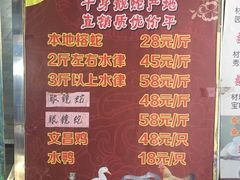 直销质优价平
本地榕蛇 28元/斤
2斤左右水律 45元/斤
3斤以上水律 58元/斤
眼镜 48元/斤
眼镜 58元/斤
文昌鸡 48元/只
水鸭 18元/只